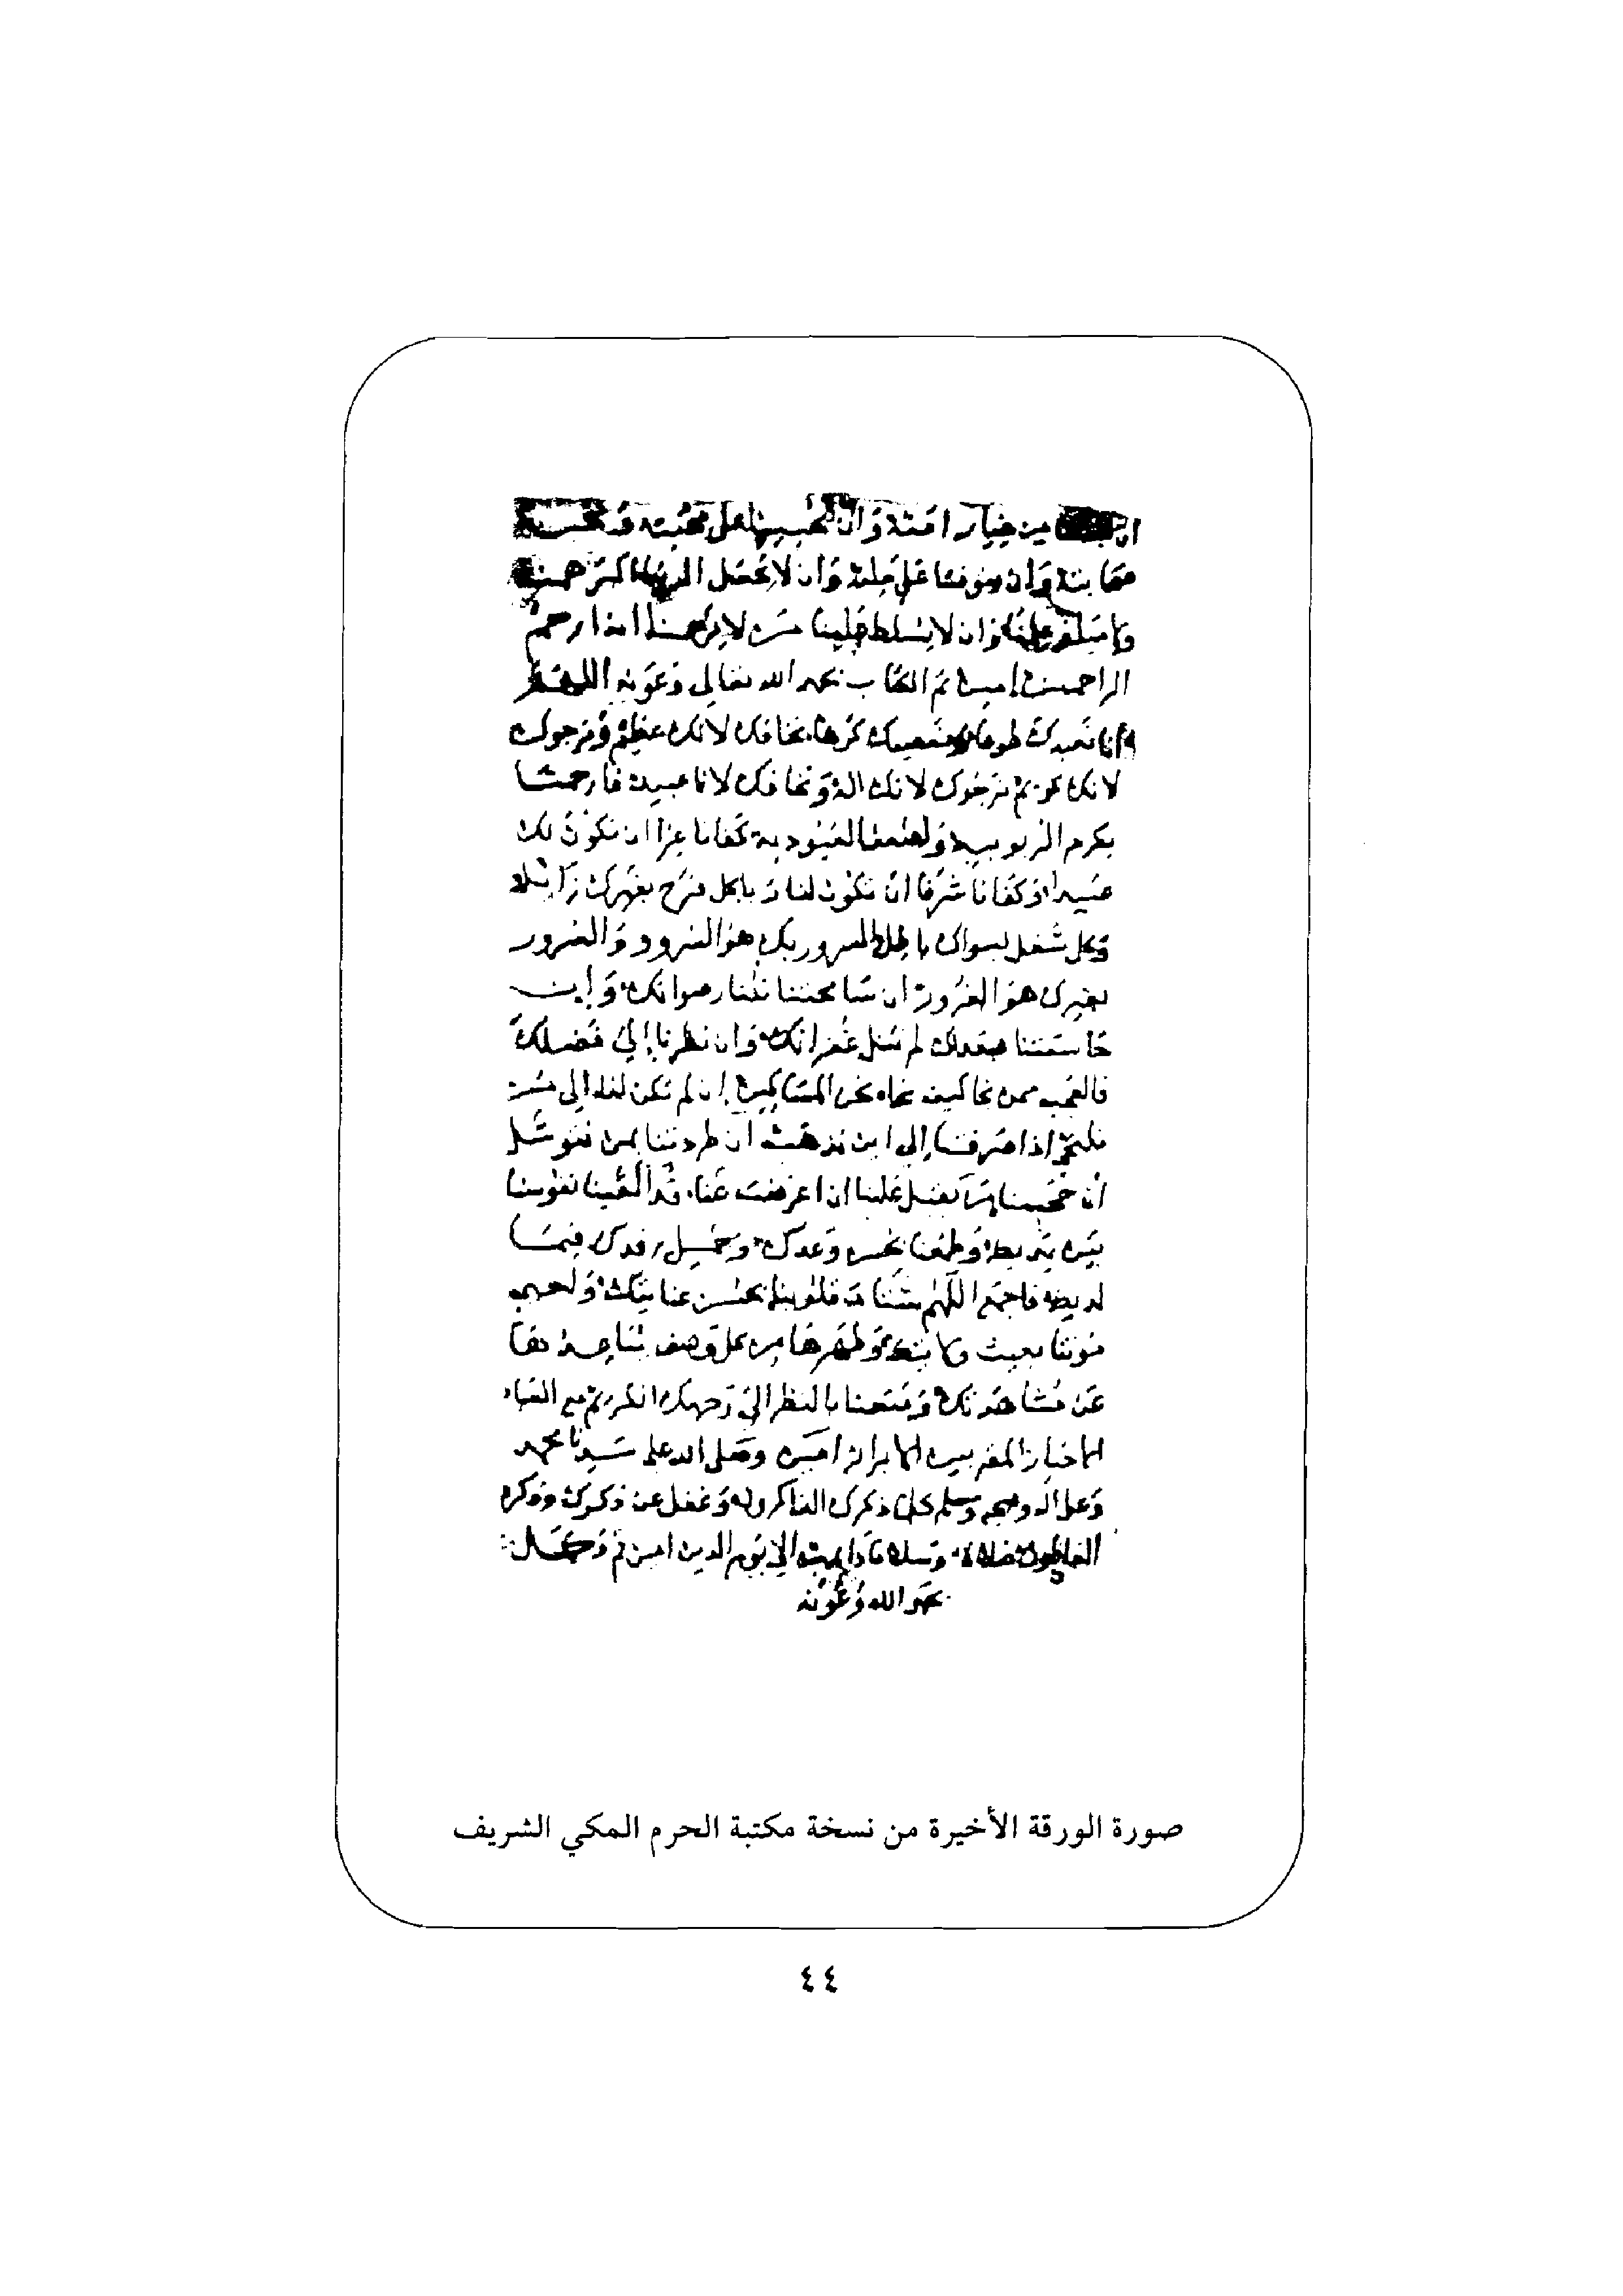 من خيار امته وان يحيينا على محبته
وان يتوفنا على ملته وان لا تجعل الدنيا اكبر همنا
علمنا وان لا يسلط علينا من لا يرحمنا انه ارحم
الراحمين امين تم الكتاب بحمد الله تعالى وعونه اللهم
انا نعبدك طوعا ونعصيك كرها نخافك لانك عظيم ونرجوك
لانك كريم نرجوك لانك اله ونخافك لانا عبيد فارحمنا
بكرم الربوبية العبودية كفانا عزا ان نكون لك
عبيدا وكفانا شرفا ان تكون لنا ربا كل فرح بغيرك زائل
وكل شغل بسواك باطل السرور بك هو السرور والسرور
بغيرك هو الغرور ان سامحتنا نلنا رضوانك وان
حاسبتنا بعدلك لم ننل غفرانك وان نظرنا إلى فضلك
فالعجب ممن نجا كيف نجا نحن المساكين إن لم تكن لنا إلى من
نلتجئ اذا صرفتنا إلى اين نذهب ان طردتنا بمن نتوسل
ان حجبتنا من يقبل علينا ان اعرضت عنا قد ألقينا نفوسنا
بين يديك وطمعنا بحسن وعدك وجميل رفدك فيما
لديك فاجمع اللهم شتات قلوبنا بحسن عنايتك
من كل وصف يباعدها
عن مشاهدتك ومتعنا بالنظر إلى وجهك الكريم مع
الاخيار المقربين الابرار امين وصلى الله على سيدنا محمد
وعلى اله وصحبه وسلم كلما ذكرك الذاكرون وغفل عن ذكرك وذكره
الغافلون صلاة وسلاما دايمين الى يوم الدين امين تم وكمل
بحمد الله وعونه
صورة الورقة الأخيرة من نسخة مكتبة الحرم المكي الشريف
٤٤